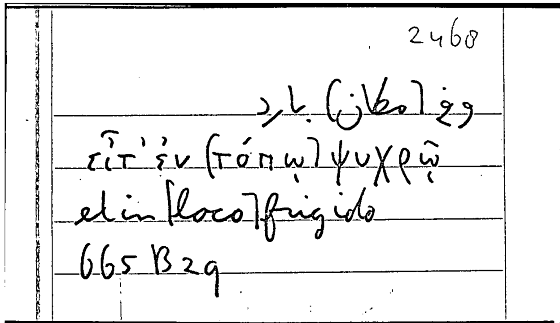 2468
εἴτ' ἐν (τόπῳ] ψυχρῷ
et in [loco] frigido
665 B 29